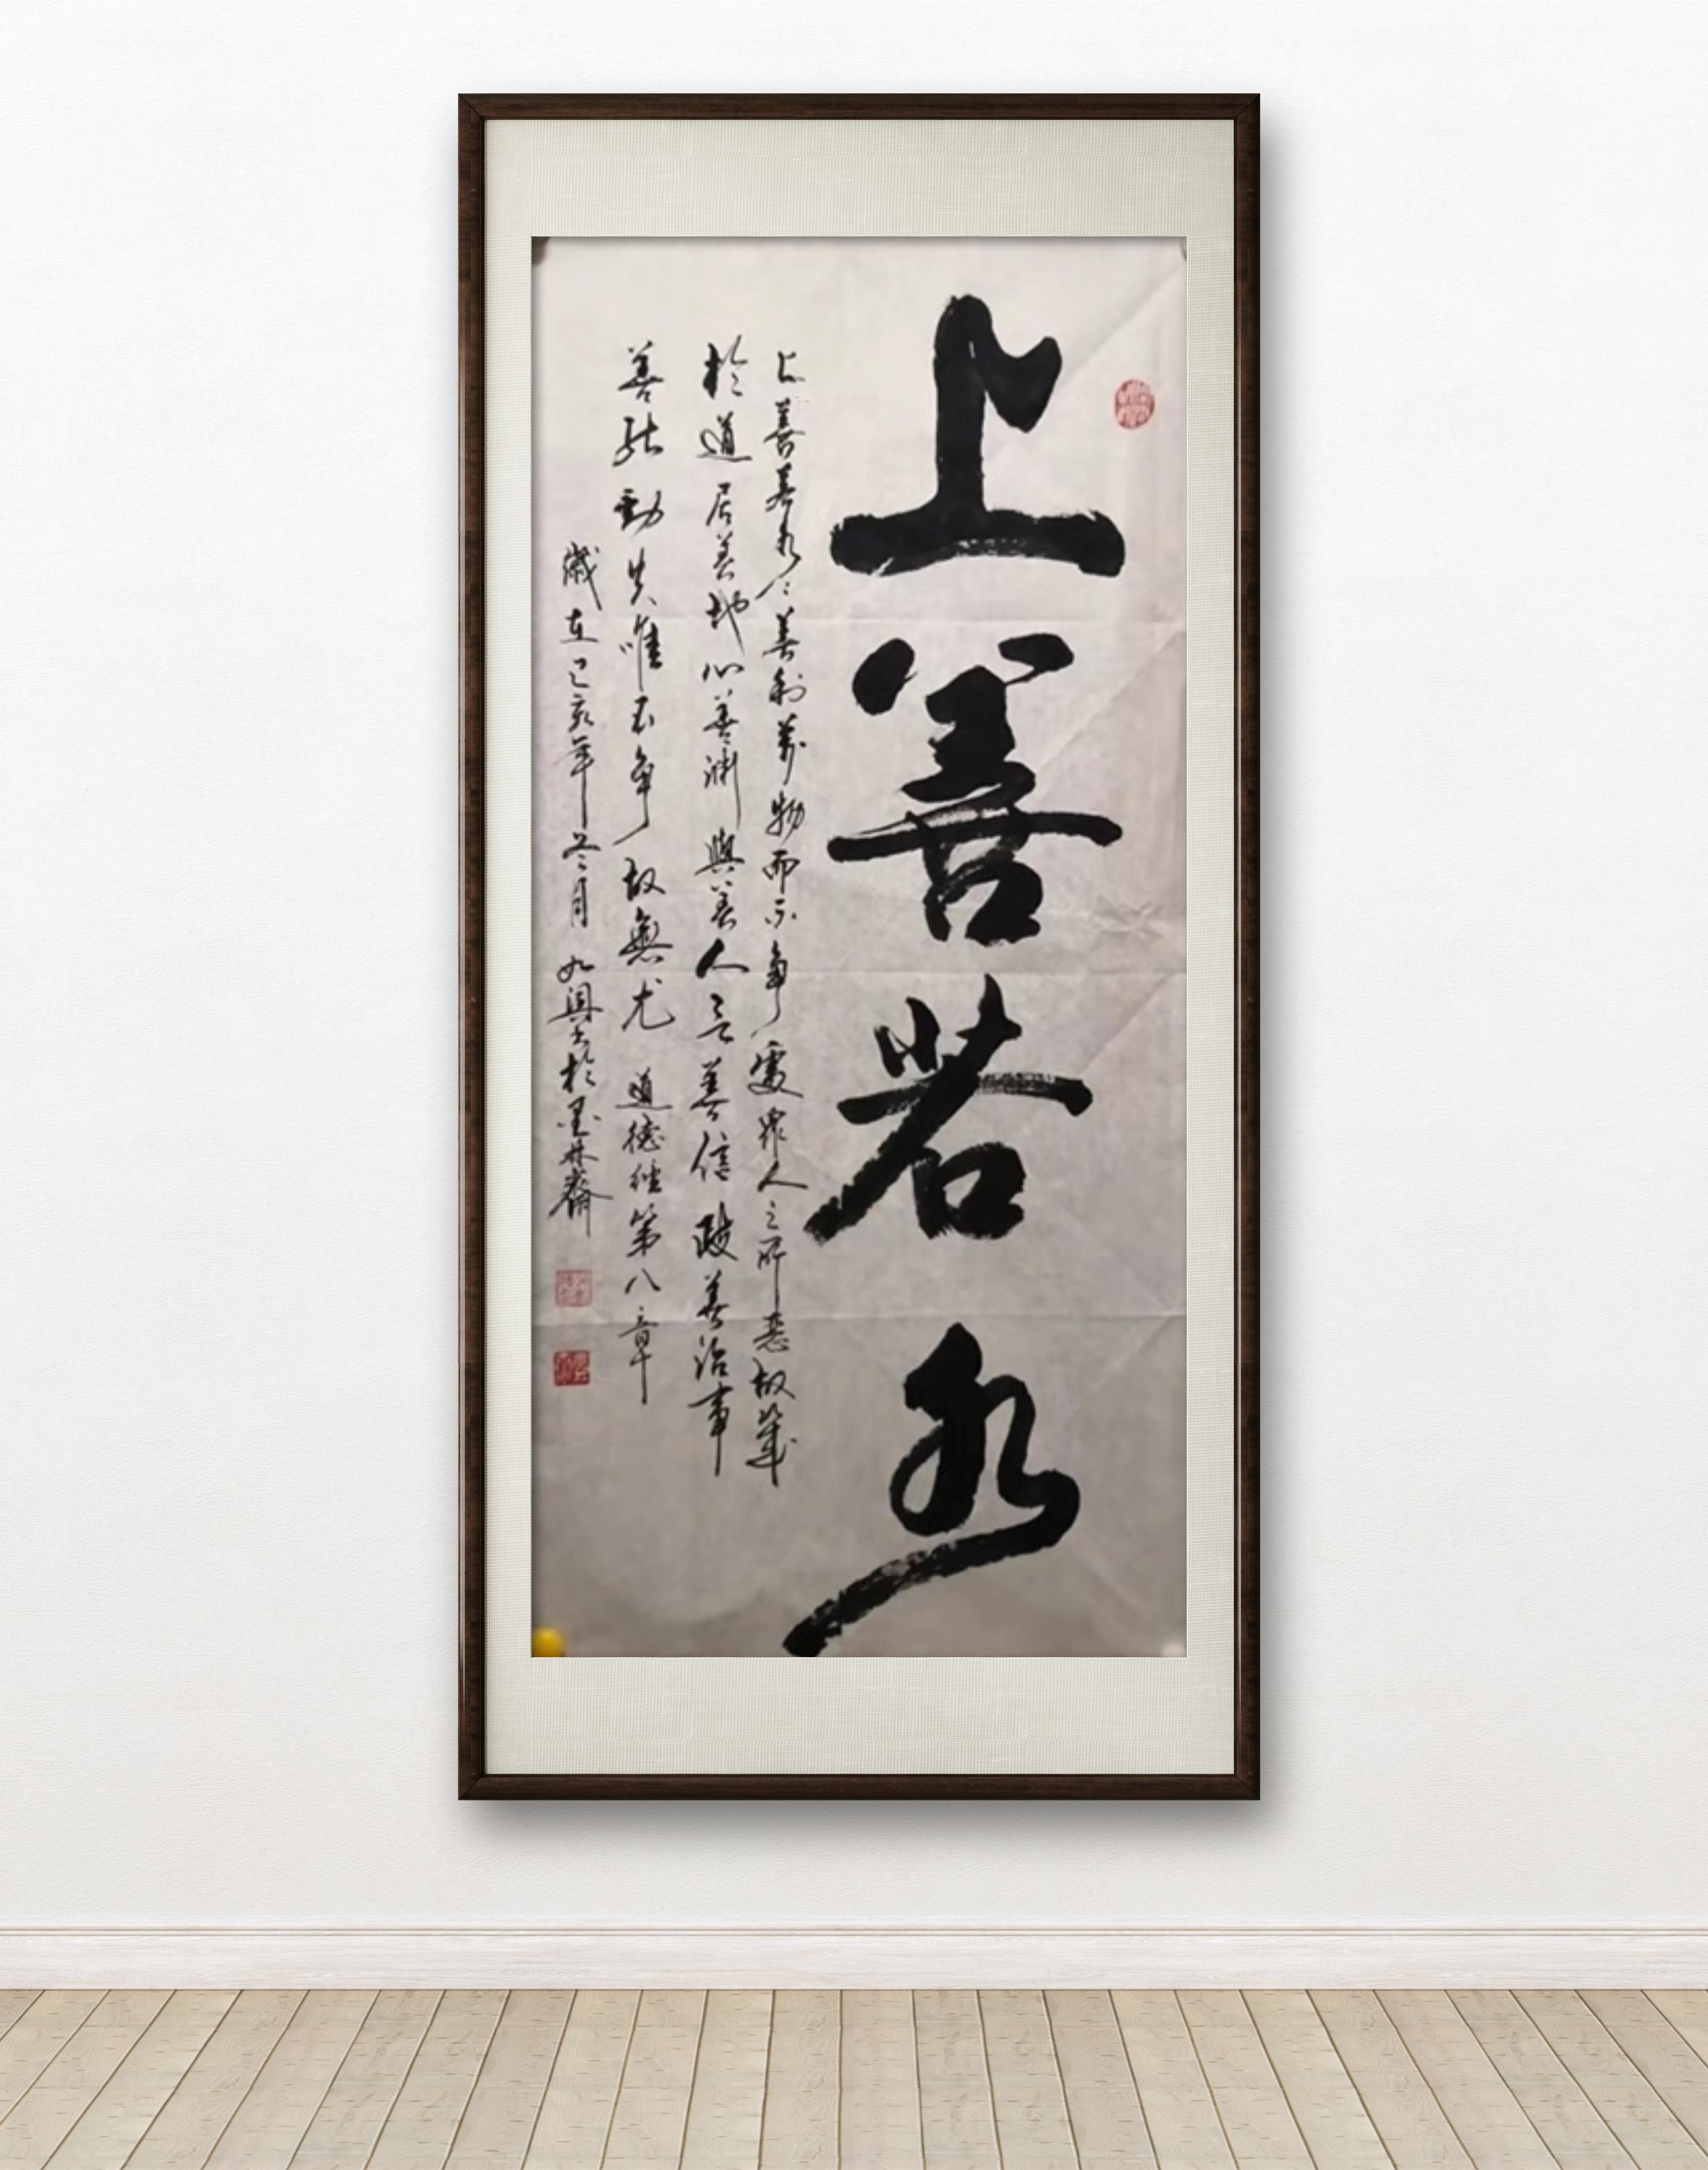 上善若水
上善若水〻善利萬物而不争處眾人之所惡故幾
於道居善地心善渊與善人言善信政善治事
善能動夫唯不争故無尤 道德经第八章
歲在己亥年冬月 興书於墨林齋